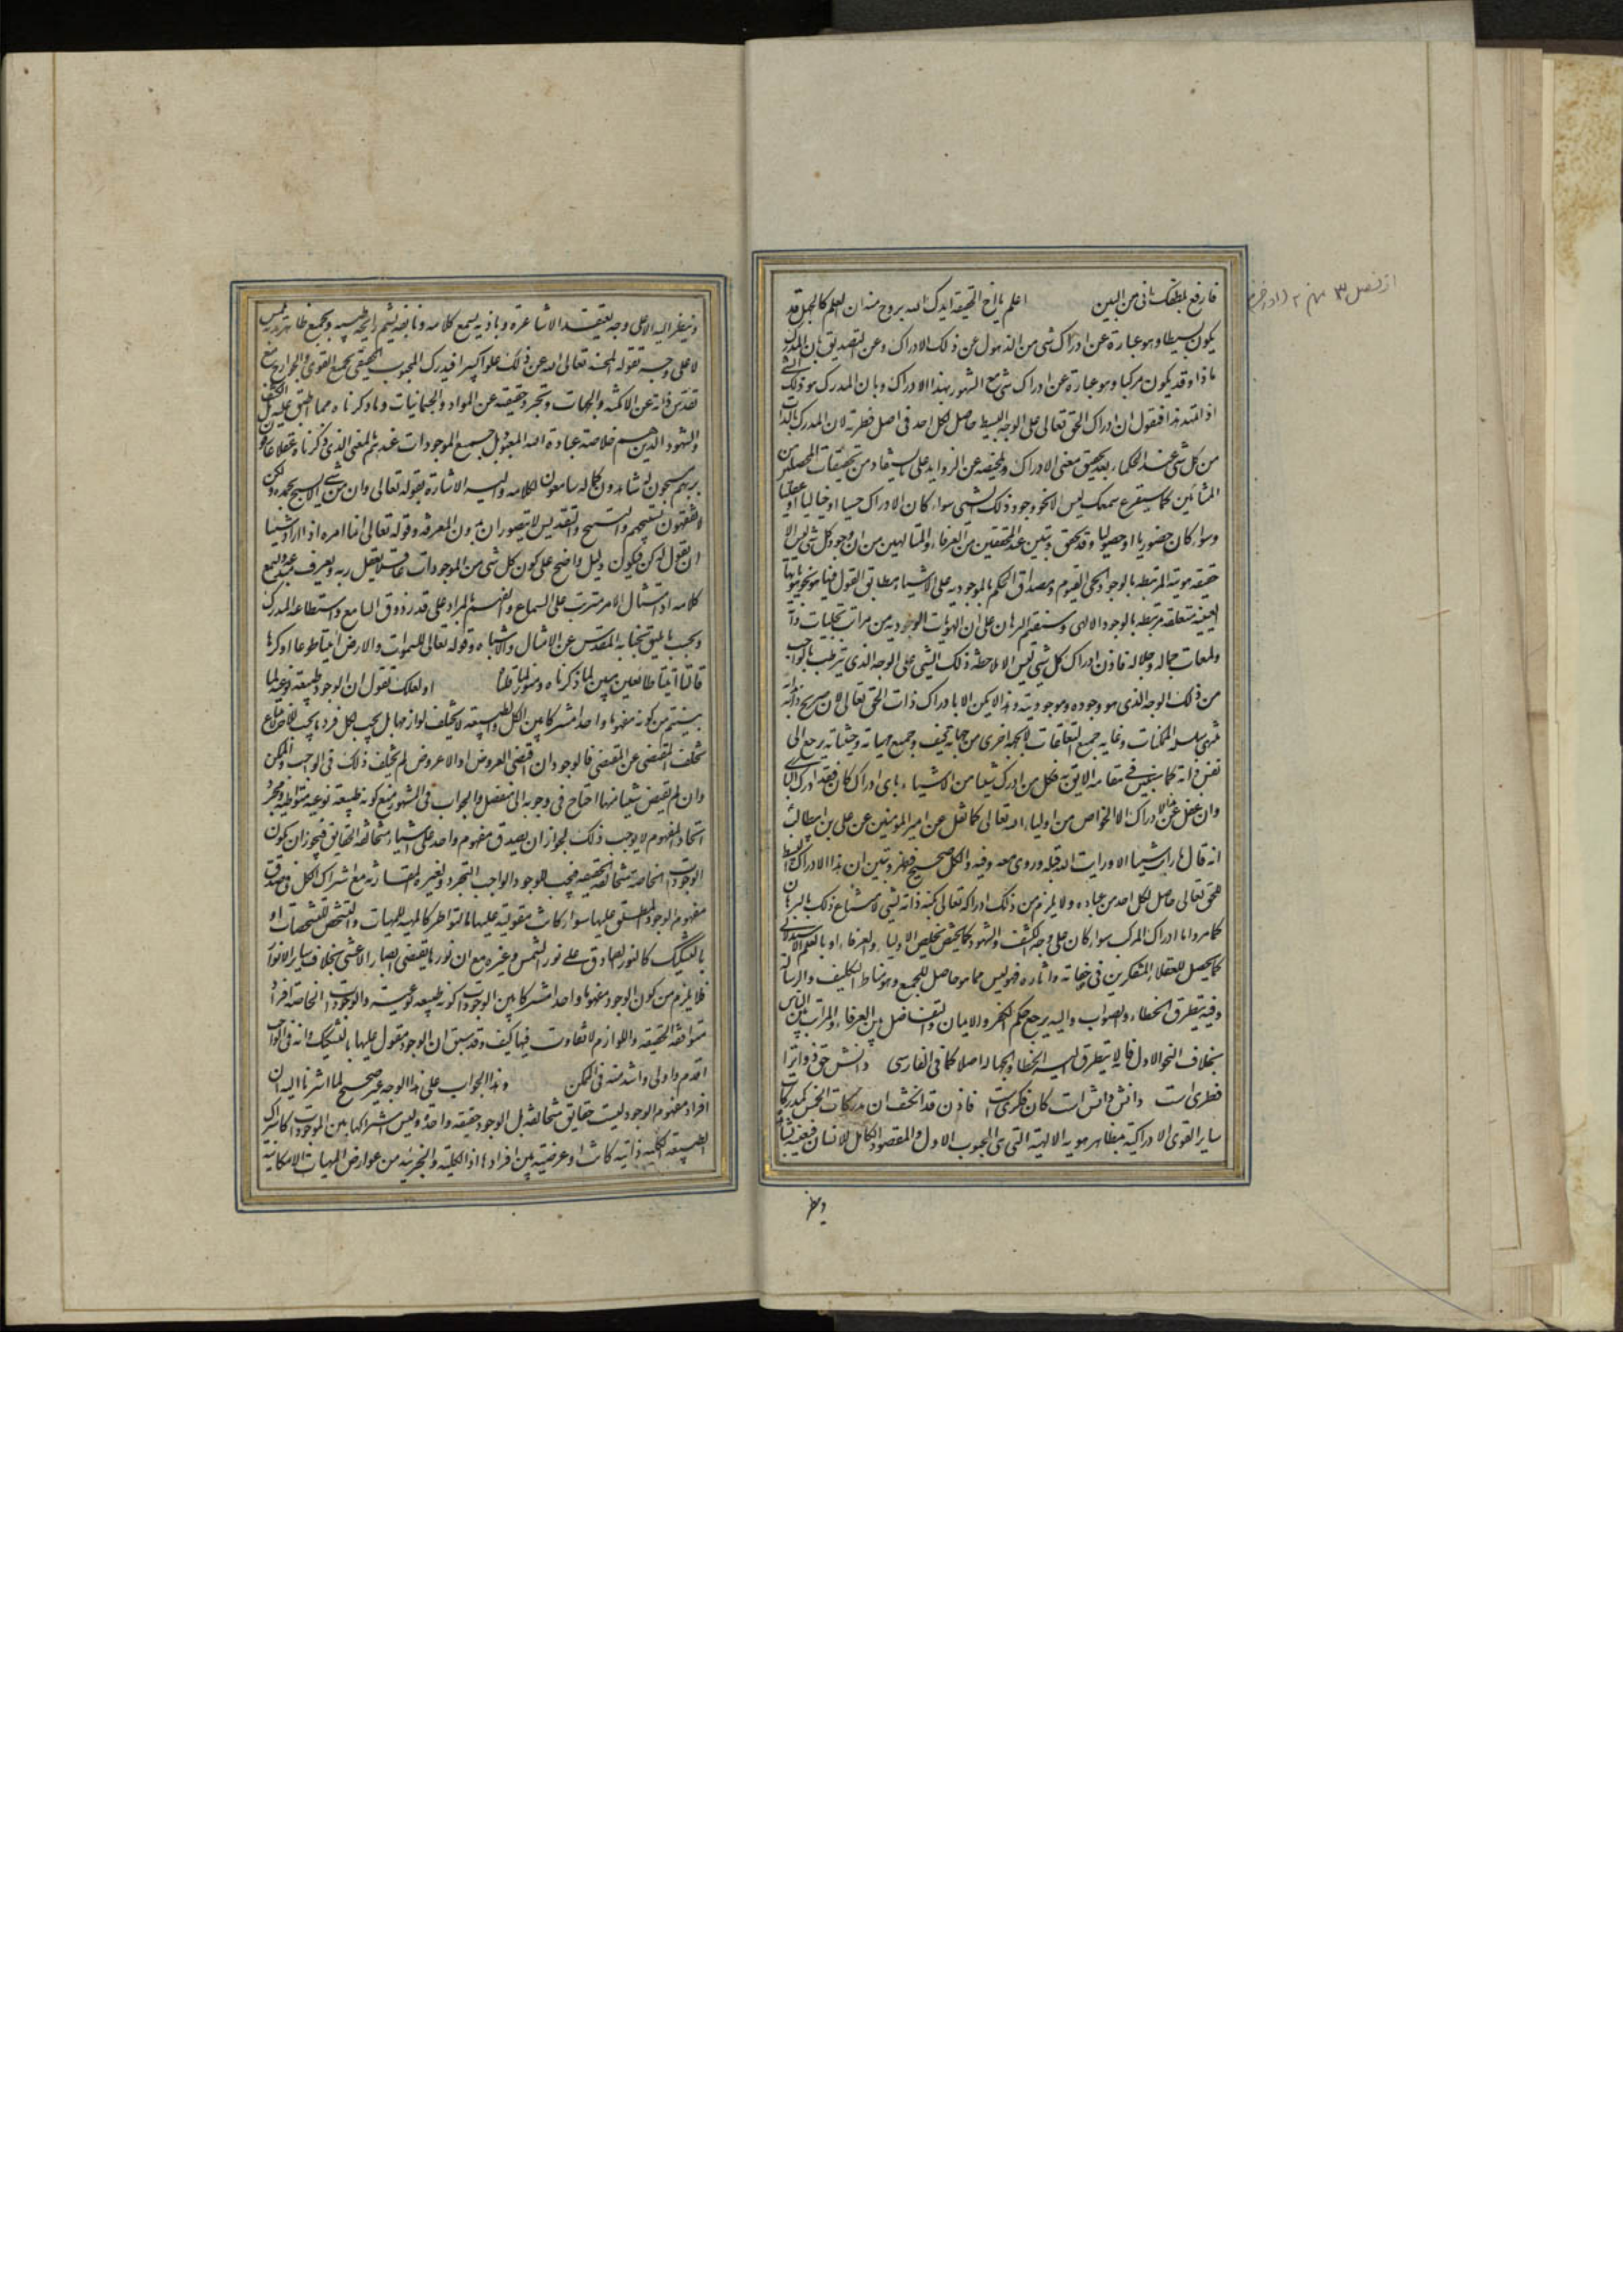 فارفع بلطفك انى من البين اعلم يا اخ الحقيقة ايدك الله بروح منه ان العلم كالجهل قد
يكون بسيطا وهو عبارة عن ادراك شى مع الذهول عن ذلك الادراك وعن التصديق بان المدرك
ماذا وقد يكون مركبا وهو عبارة عن ادراك شى مع الشعور بهذا الادراك وبان المدرك هو ذلك الشى
اذا تمهد هذا فنقول ان ادراك الحق تعالى على الوجه البسيط حاصل لكل احد فى اصل فطرته لان المدرك بالذات
من كل شى عند الحكماء بعد تحقيق معنى الادراك وتلخيصه عن الزوايد على ما يستفاد من تحقيقات المحصلين من
المشائين كما سيقرع سمعك ليس الا نحو وجود ذلك الشى سواء كان الادراك حسيا او خياليا او عقليا
وسواء كان حضوريا او حصوليا وقد تحقق وتبين عند المحققين من العرفاء والمتالهين من ان وجود كل شى ليس الا
حقيقة هويته المرتبطة بالوجود الحى القيوم ومصداق الحكم بالموجودية على الاشياء ومطابق القول فيها هو نحو هوياتها
العينية متعلقة مرتبطة بالوجود الالهى وسنقيم البرهان على ان الهويات الوجودية من مراتب تجليات ذاته
ولمعات جماله وجلاله فاذن ادراك كل شى ليس الا ملاحظة ذلك الشى على الوجه الذى يرتبط بالواجب
من ذلك الوجه الذى هو وجوده وموجوديته وهذا لا يمكن الا بادراك ذات الحق تعالى لان صريح ذاته بذاته
منتهى سلسلة الممكنات وغاية جميع التعلقات لا بجهة اخرى من جهاته كيف وجميع جهاته وحيثياته يرجع الى
نفس ذاته كما سنبين فى مقامه الايق به فكل من ادرك شيئا من الاشياء باى ادراك كان فقد ادرك البارى
وان غفل عن هذا الادراك الا الخواص من اولياء الله تعالى كما نقل عن امير المومنين عن على بن ابيطالب
انه قال ما رايت شيئا الا ورايت الله قبله وروى معه وفيه والكل صحيح فظهر وتبين ان هذا الادراك البسيط
للحق تعالى حاصل لكل احد من عباده ولا يلزم من ذلك ادراكه تعالى بكنه ذاته لشى لامتناع ذلك بالبرهان
كما مر واما ادراك المركب سواء كان على وجه الكشف والشهود كما يختص بخلص الاولياء والعرفاء او بالعلم الاستدلالى
كما يحصل للعقلاء المتفكرين فى صفاته واثاره فهو ليس مما هو حاصل للجميع وهو مناط التكليف والرسالة
وفيه يتطرق الخطاء والصواب واليه يرجع حكم الكفر والايمان والتفاضل بين العرفاء والمراتب بين الناس
بخلاف النحو الاول فانه لا يتطرق اليه الخطا والجهالة اصلا كما فى الفارسى دانش حق ذوات را
فطرى است دانش دانش است كان فكرى است فاذن قد انكشف ان مدركات الخمس كمدركات
ساير القوى الادراكية مظاهر هوية الالهية التى هى المحبوب الاول والمقصود الكامل للانسان فبعينه يشاهده
وينظر
از فصل ٣ منهج ٢
وينظر اليه لا على وجه يعتقده الاشاعرة وباذنه يسمع كلامه وبانفه يشم رايحة طيبه وبجميع ظاهر بدنه يلمس
لا على وجه يقوله المجسمة تعالى الله عن ذلك علوا كبيرا فيدرك المحبوب الحقيقى بجميع القوى والجوارح مع
تقدس ذاته عن الامكنة والجهات وتجرد حقيقته عن المواد والجسمانيات وما ذكرناه مما اطبق عليه اهل الكشف
والشهود الذين هم خلاصة عباد الله المعبود بل جميع الموجودات عندهم بالمعنى الذى ذكرناه عقلاء عارفون
بربهم مسبحون له شاهدون لجماله سامعون لكلامه واليه الاشارة بقوله تعالى وان من شى الا يسبح بحمده ولكن
لا تفقهون تسبيحهم والتسبيح والتقديس لا يتصوران بدون المعرفة وقوله تعالى انما امره اذا اراد شيئا
ان يقول له كن فيكون دليل واضح على كون كل شى من الموجودات عاقلا يعقل ربه ويعرف مبدعه ويسمع
كلامه اذ امتثال الامر مترتب على السماع والفهم بالمراد على قدر ذوق السامع واستطاعة المدرك
وبحسب ما يليق بجنابه المقدس عن الامثال والاشباه وقوله تعالى للسموات والارض ائتيا طوعا او كرها
قالتا اتينا طائعين مبين لما ذكرناه ومنور لما قلنا او لعلك تقول ان الوجود طبيعة نوعية لما
بينتم من كونه مفهوما واحدا مشتركا بين الكل والطبيعة لا تختلف لوازمها بل يجب لكل فرد ما يجب للاخر لامتناع
تخلف المقتضى عن المقتضى فالوجود ان اقتضى العروض او اللاعروض لم يختلف ذلك فى الواجب والممكن
وان لم يقتض شيئا منهما احتاج فى وجوبه الى منفصل والجواب فى المشهور منع كونه طبيعة نوعية متواطية ومجرد
اتحاد المفهوم لا يوجب ذلك لجواز ان يصدق مفهوم واحد على اشياء متخالفة الحقايق فيجوز ان يكون
الوجودات الخاصة متخالفة الحقيقة فيجب للوجود الواجب التجرد ولغيره المقارنة مع اشتراك الكل فى صدق
مفهوم الوجود المطلق عليها سواء كانت مقوليته عليها بالتواطؤ كالمهية للمهيات والتشخص للتشخصات او
بالتشكيك كالنور الصادق على نور الشمس وغيره مع ان نورها يقتضى ابصار الاعشى بخلاف ساير الانوار
فلا يلزم من كون الوجود مفهوما واحدا مشتركا بين الوجودات كونه طبيعة نوعية والوجودات الخاصة افرادا
متوافقة الحقيقة واللوازم لا تفاوت فيها كيف وقد سبق ان الوجود مقول عليها بالتشكيك وانه فى الواجب
اقدم واولى واشد منه فى الممكن وهذا الجواب على هذا الوجه غير صحيح لما اشرنا اليه ان
افراد مفهوم الوجود ليست حقايق متخالفة بل الوجود حقيقة واحدة وليس اشتراكها بين الموجودات كاشتراك
الطبيعة الكلية ذاتية كانت او عرضية بين افرادها اذ الكلية والجزئية من عوارض المهيات الامكانية